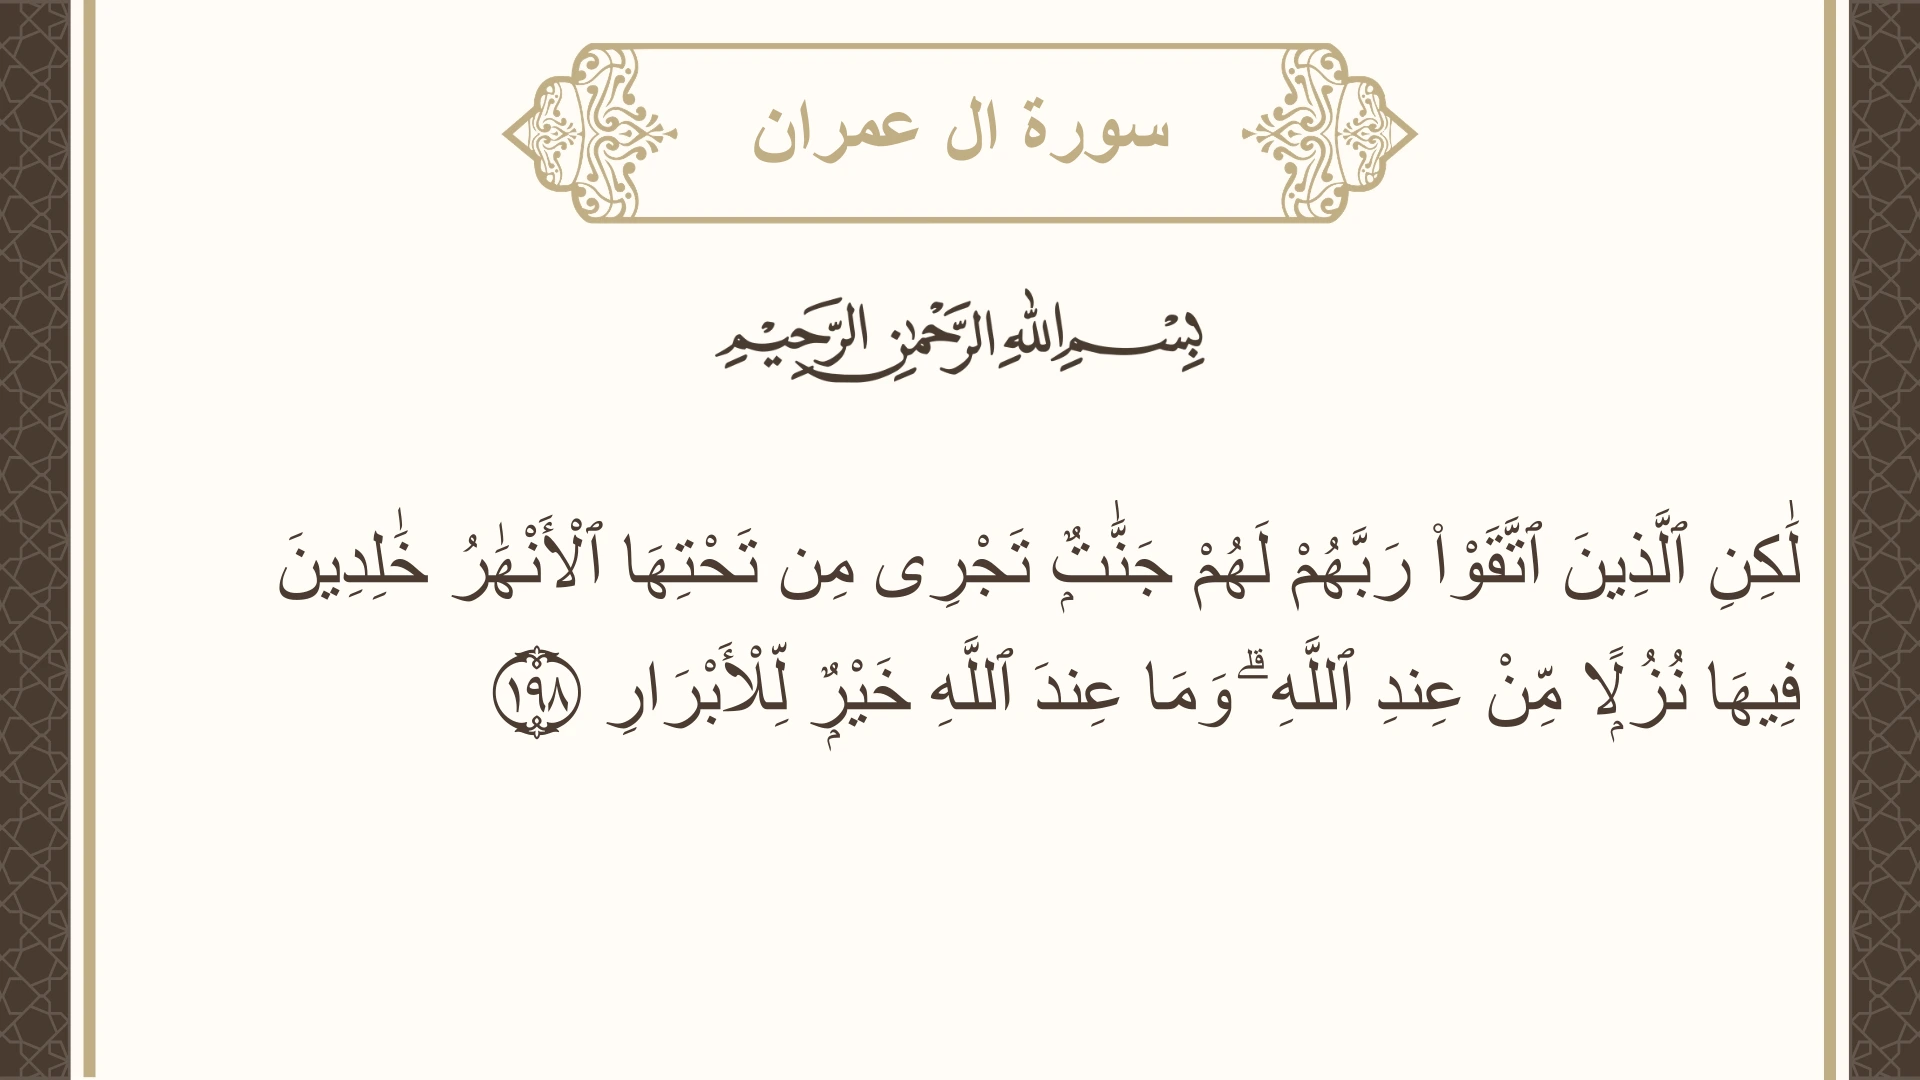 سورة ال عمران
بِسْمِ اللهِ الرَّحْمٰنِ الرَّحِيْمِ
لَٰكِنِ ٱلَّذِينَ ٱتَّقَوْا۟ رَبَّهُمْ لَهُمْ جَنَّٰتٌۭ تَجْرِى مِن تَحْتِهَا ٱلْأَنْهَٰرُ خَٰلِدِينَ
فِيهَا نُزُلًۭا مِّنْ عِندِ ٱللَّهِ ۗ وَمَا عِندَ ٱللَّهِ خَيْرٌۭ لِّلْأَبْرَارِ ١٩٨